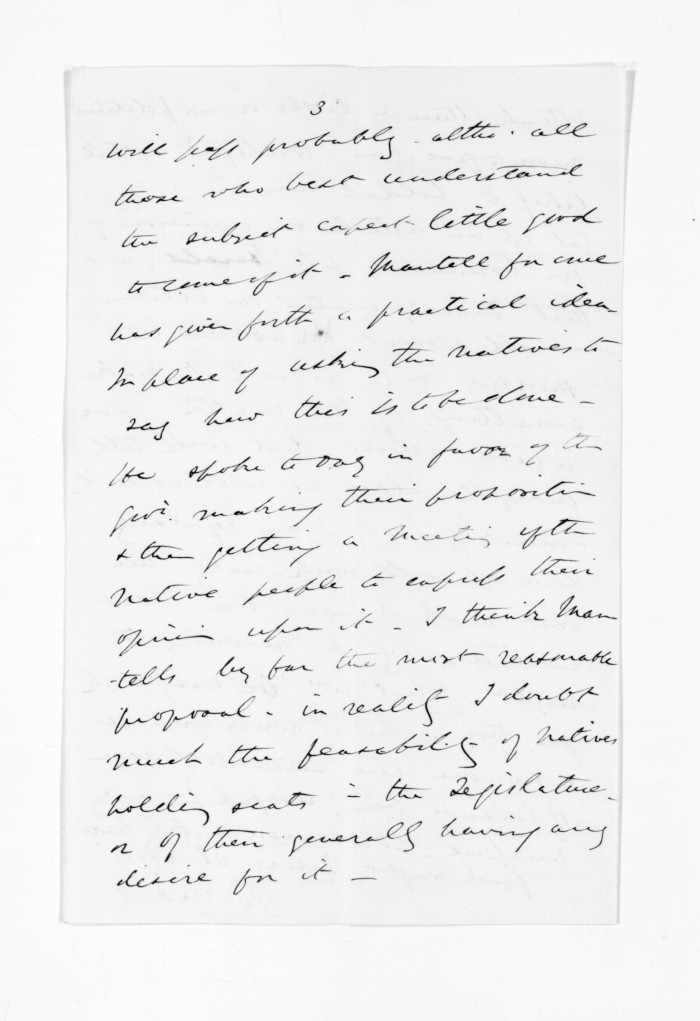 3
will pass probably - altho. all
those who best understand
the subject expect little good
to come of it - Mantell for one
has given forth a practical idea
In place of asking the natives to
say how this is to be done -
He spoke today in favor of the
Govt. making their proposition
& then getting a meeting of the
native people to express their
opinion upon it - I think Man
-tells by far the most reasonable
proposal - in reality I doubt
much the feasability of Natives
holding seats in the Legislature -
or of their generally having any
desire for it -